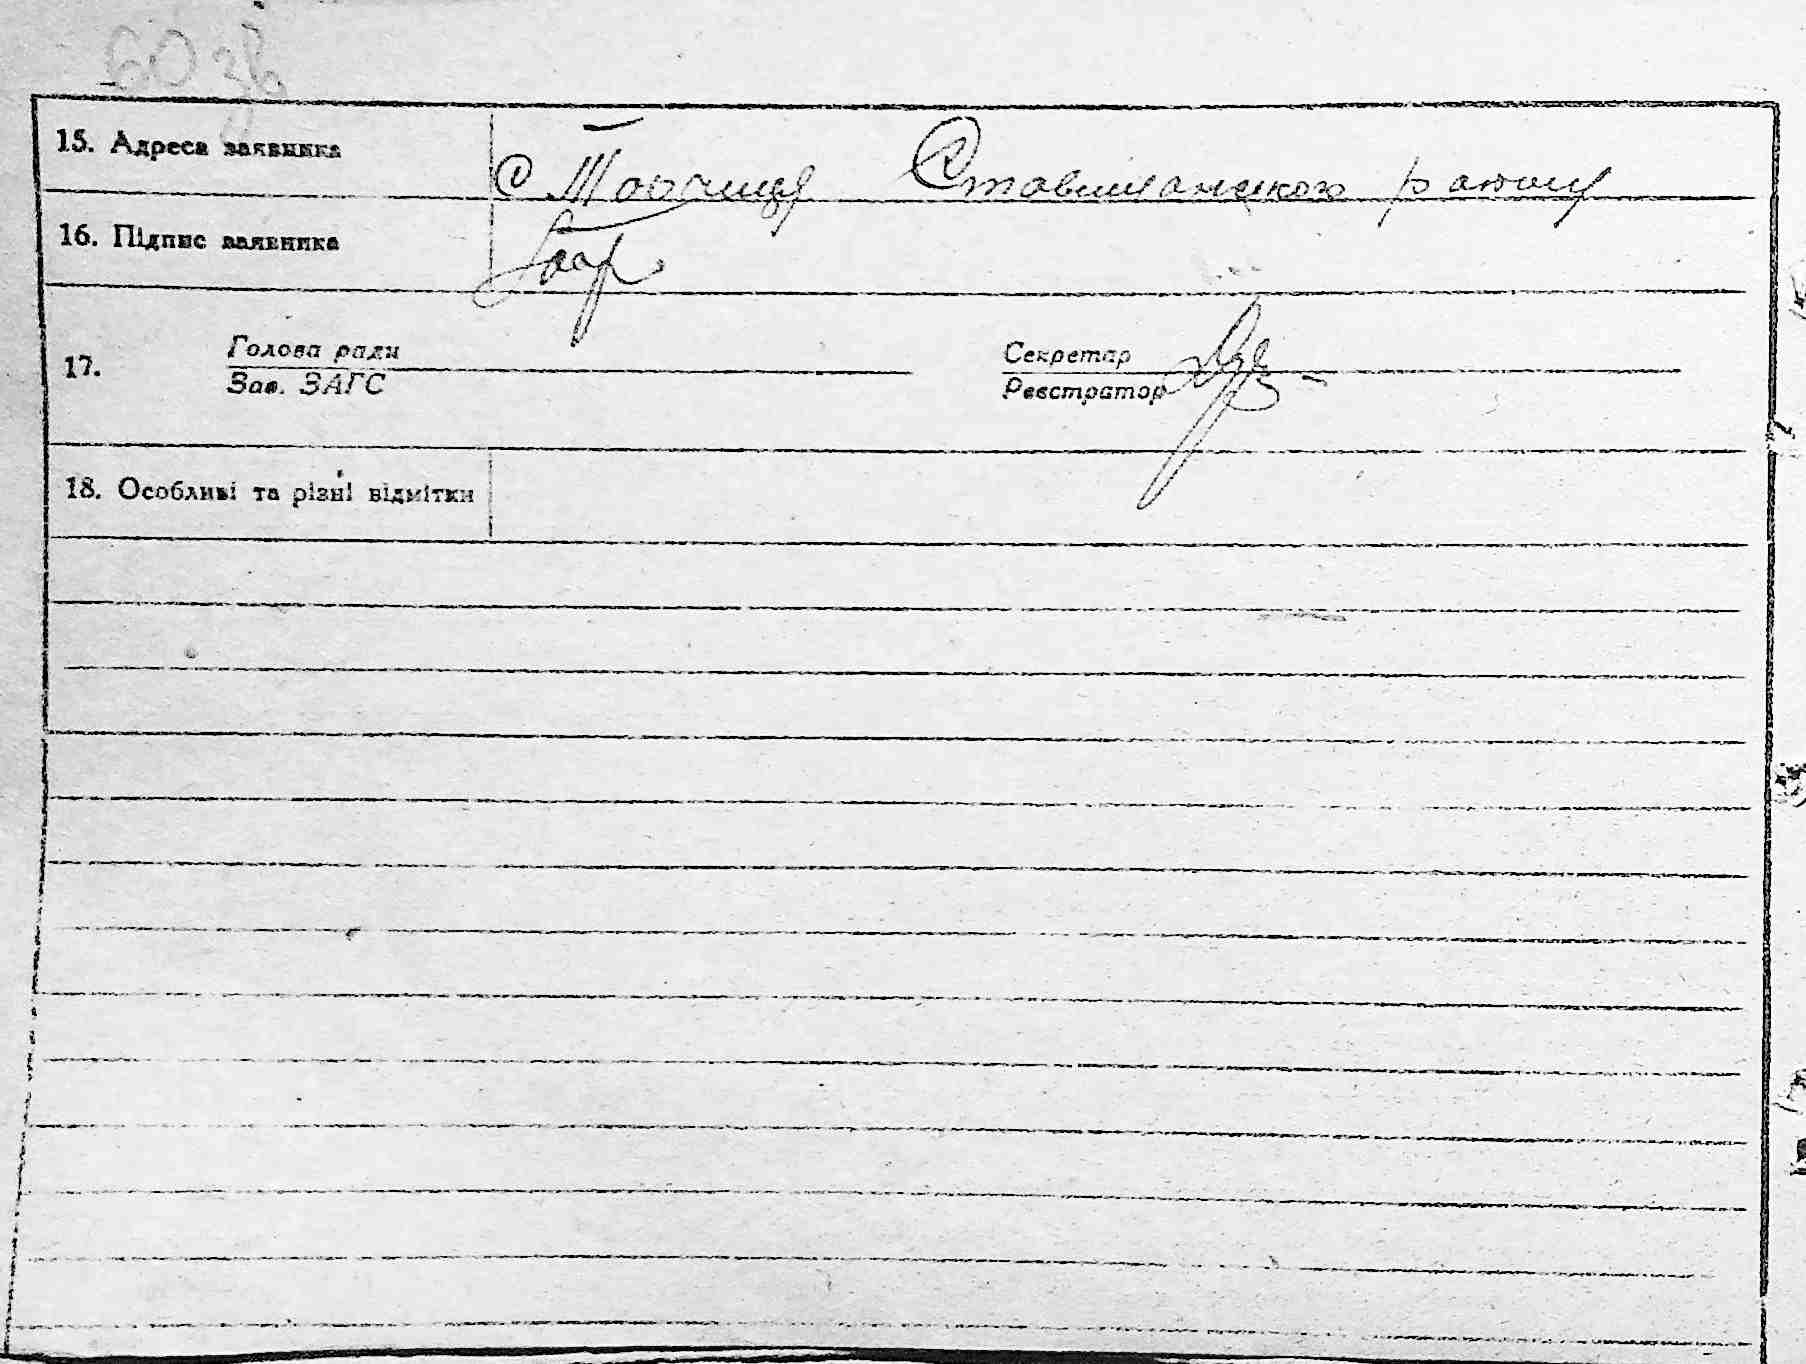 60 зв
15. Адреса заявника с Торчиця Ставищанского району
16. Підпис заявника
17. Голова ради Секретар
Зав. ЗАГС Реєстратор
18. Особливі та різні відмітки